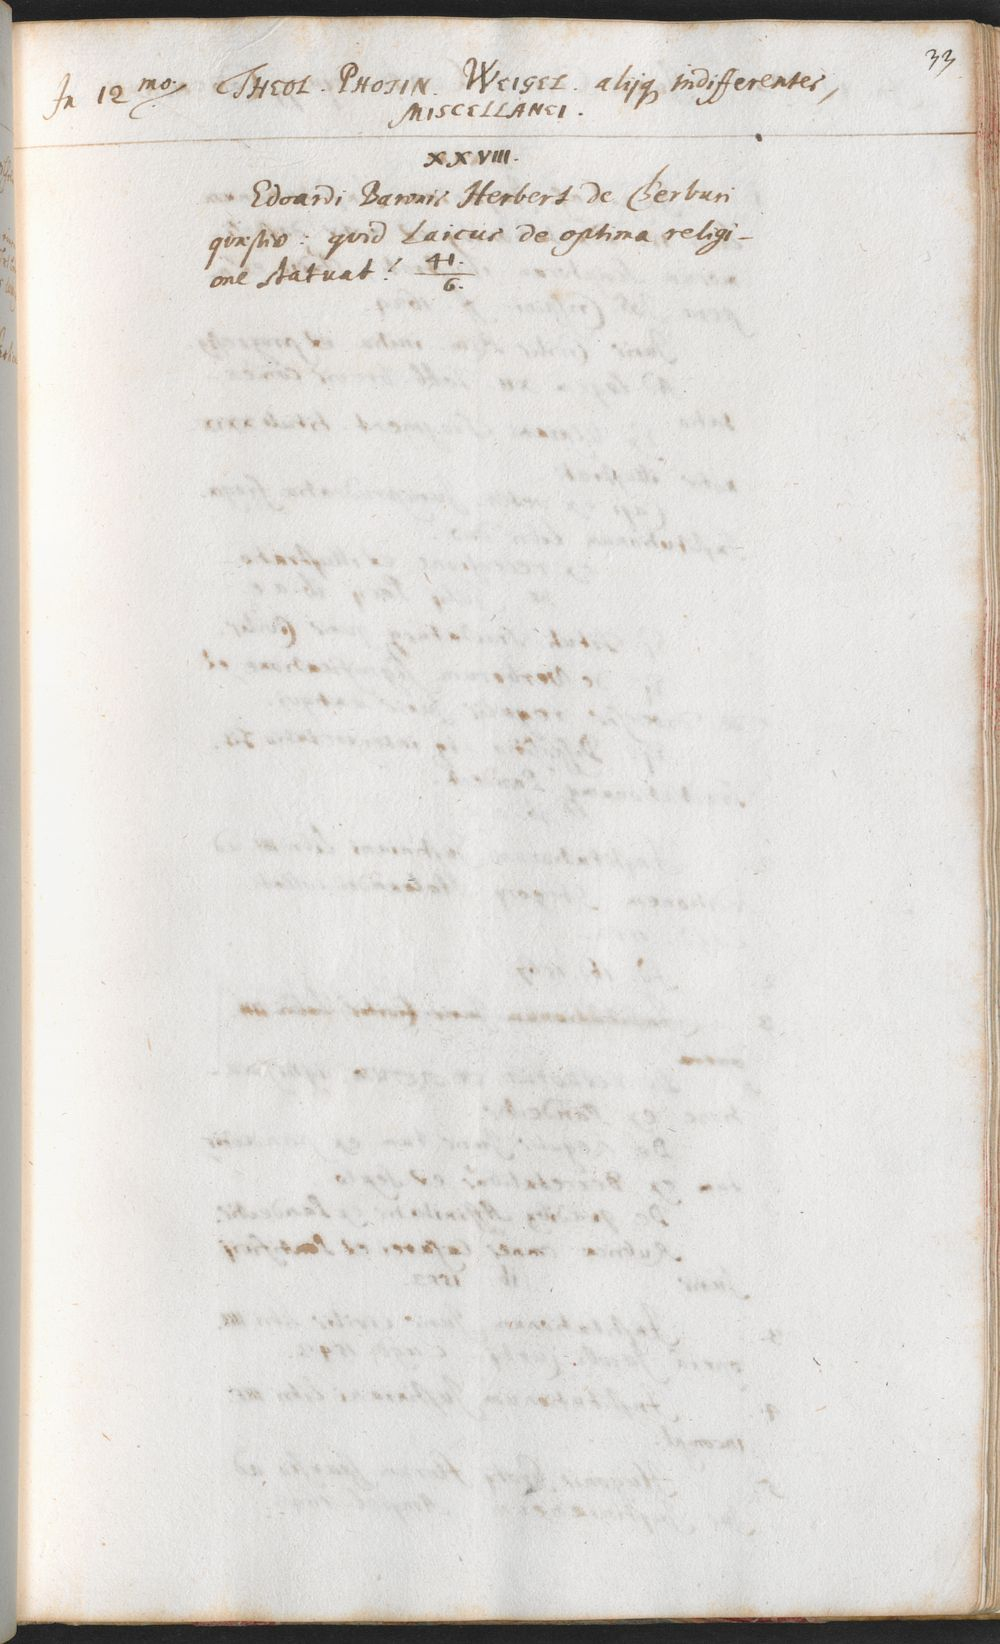 33
In 12 mo. THEOL. PHOTIN. WEIGEL. alijq indifferentes,
MISCELLANEI.
XXVIII.
Edoardi Baronis Herbert de Cherburi
quæstio: quid Laicus de optima religi-
one statuat? 41.
6.